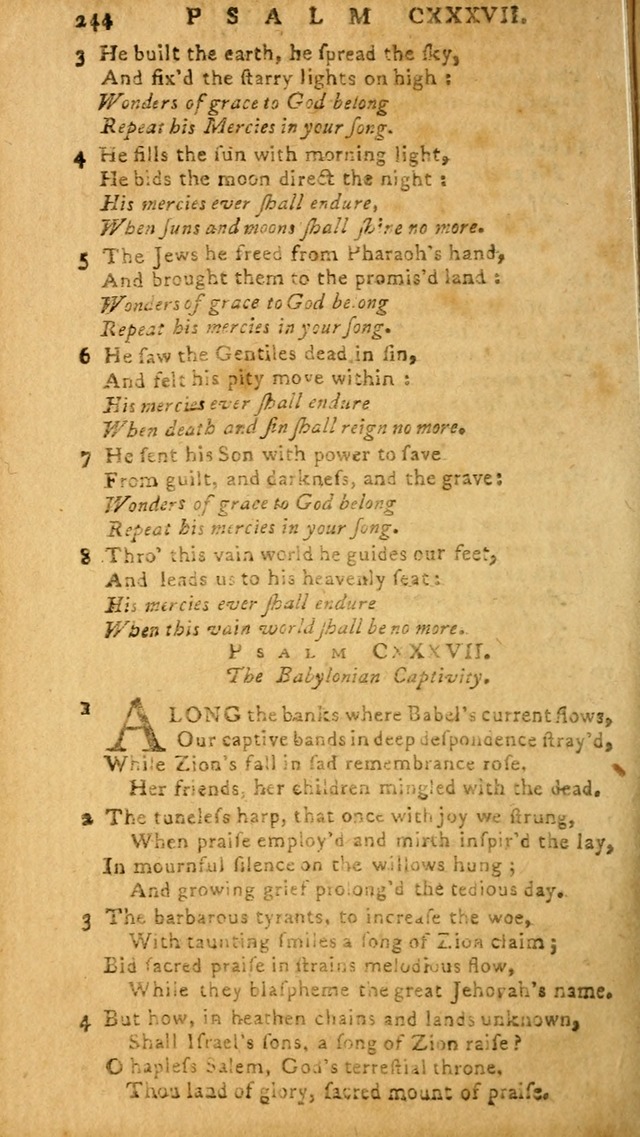 244 PSALM CXXXVII.
3 He built the earth, he ſpread the ſky,
And fix'd the ſtarry lights on high :
Wonders of grace to God belong
Repeat his Mercies in your ſong.
4 He fills the ſun with morning light,
He bids the moon direct the night :
His mercies ever ſhall endure,
When ſuns and moons ſhall ſhine no more.
5 The Jews he freed from Pharaoh's hand,
And brought them to the promis'd land :
Wonders of grace to God belong
Repeat his mercies in your ſong.
6 He ſaw the Gentiles dead in ſin,
And felt his pity move within :
His mercies ever ſhall endure
When death and ſin ſhall reign no more.
7 He ſent his Son with power to ſave
From guilt, and darkneſs, and the grave:
Wonders of grace to God belong
Repeat his mercies in your ſong.
8 Thro' this vain world he guides our feet,
And leads us to his heavenly ſeat:
His mercies ever ſhall endure
When this vain world ſhall be no more.
PSALM CXXXVII.
The Babylonian Captivity.
1 ALONG the banks where Babel's current flows,
Our captive bands in deep deſpondence ſtray'd,
While Zion's fall in ſad remembrance roſe,
Her friends, her children mingled with the dead.
2 The tuneleſs harp, that once with joy we ſtrung,
When praiſe employ'd and mirth inſpir'd the lay,
In mournful ſilence on the willows hung ;
And growing grief prolong'd the tedious day.
3 The barbarous tyrants, to increaſe the woe,
With taunting ſmiles a ſong of Zion claim ;
Bid ſacred praiſe in ſtrains melodious flow,
While they blaſpheme the great Jehovah's name.
4 But how, in heathen chains and lands unknown,
Shall Iſrael's ſons, a ſong of Zion raiſe ?
O hapleſs Salem, God's terreſtial throne,
Thou land of glory, ſacred mount of praiſe.